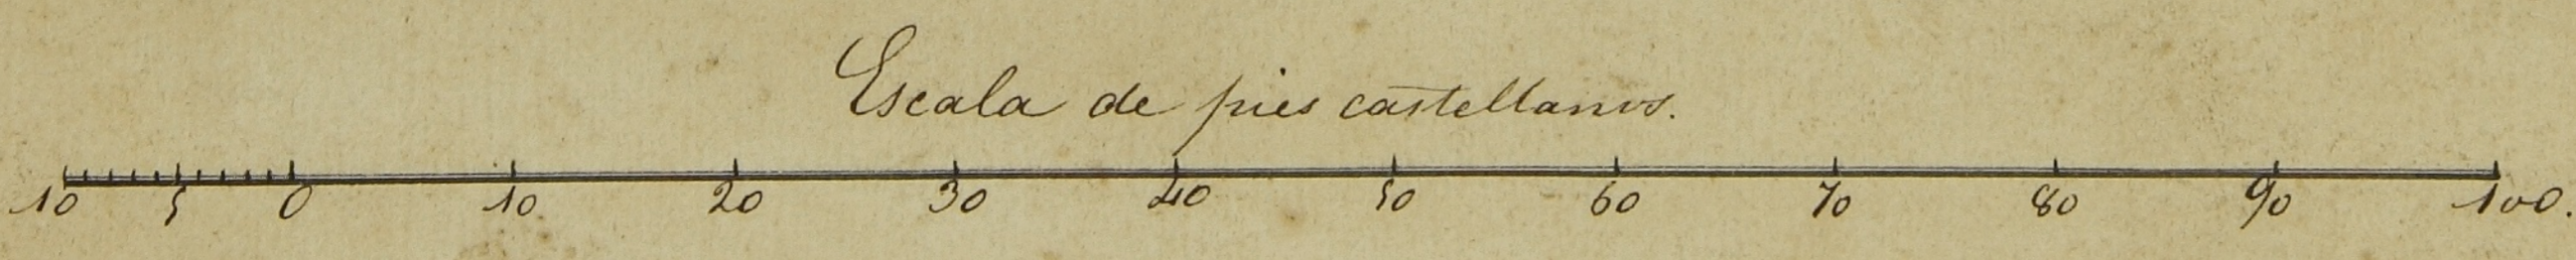 Escala de pies castellanos.
10 5 0 10 20 30 40 50 60 70 80 90 100.